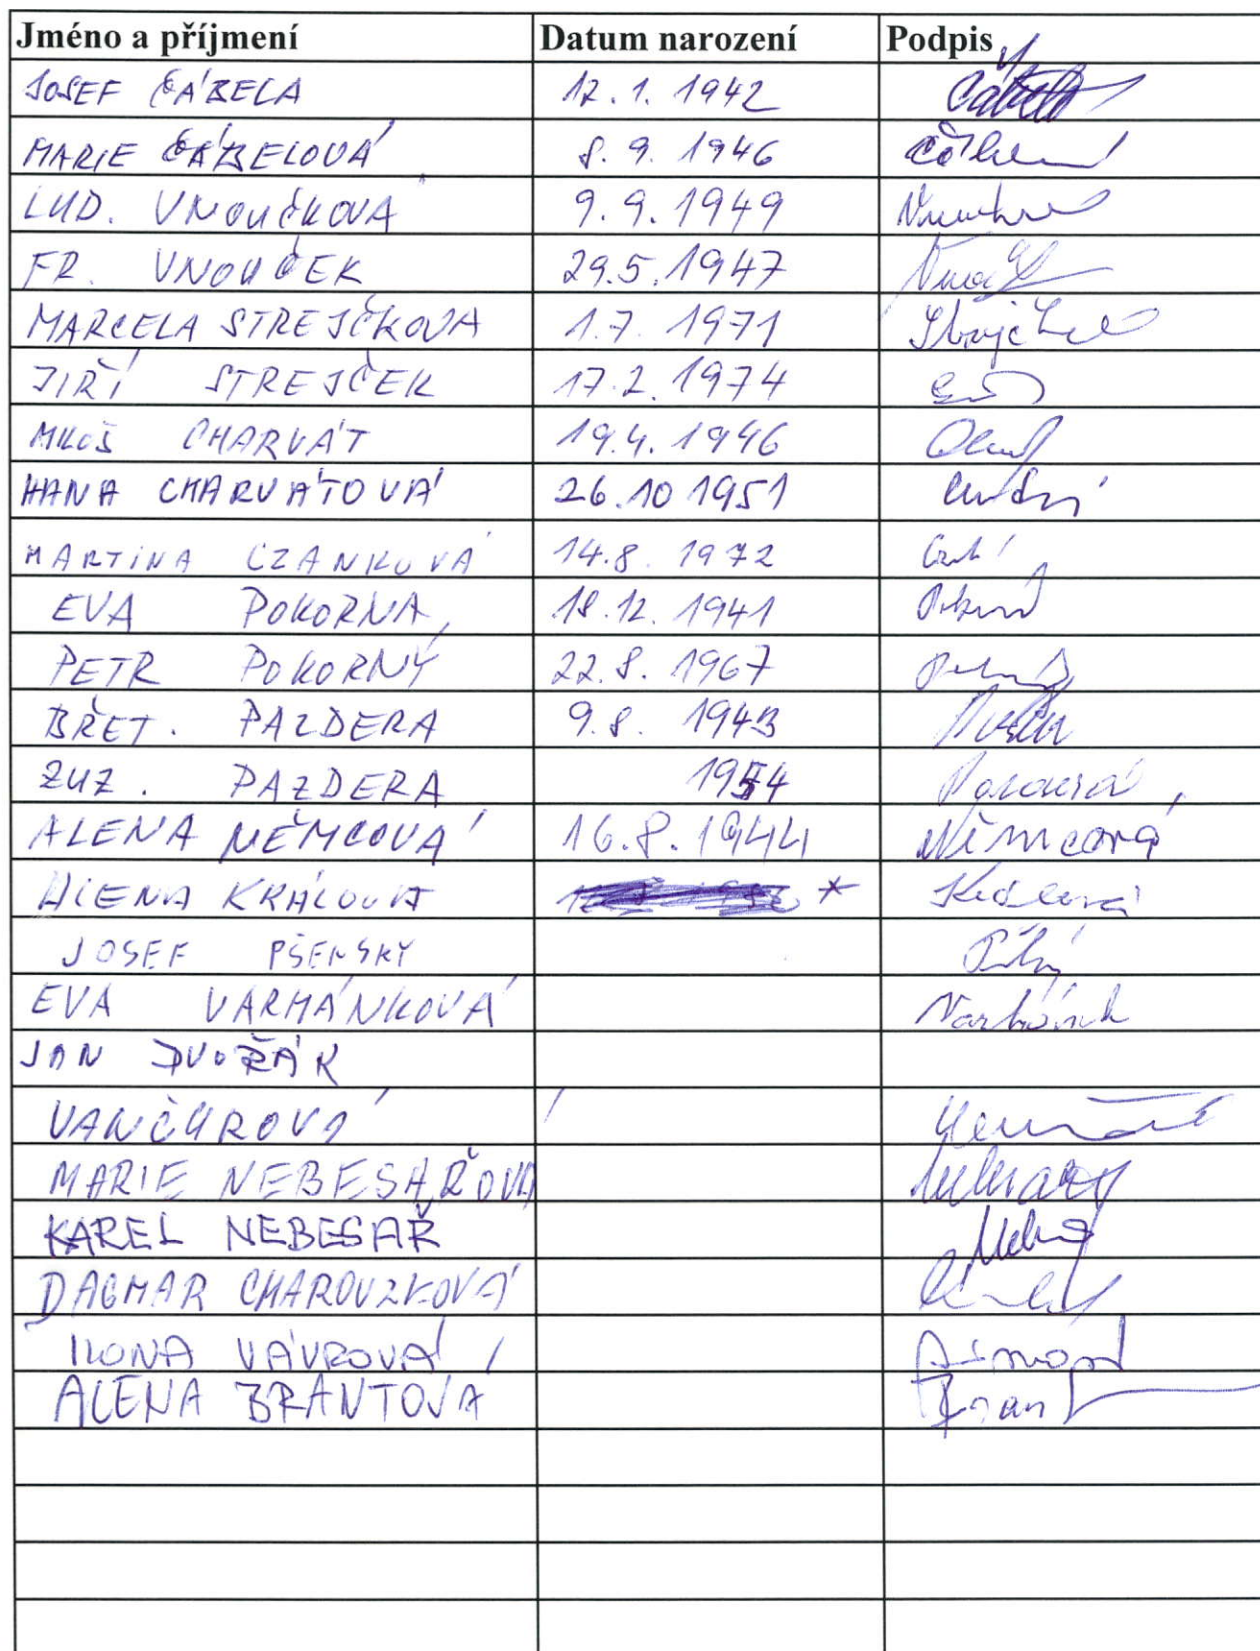 Jméno a příjmení Datum narození Podpis
JOSEF ČÁBELA 12.1.1942
MARIE ČÁBELOVÁ 8.9.1946
LUD. VNOUČKOVÁ 9.9.1949
FR. VNOUČEK 29.5.1947
MARCELA STREJČKOVÁ 1.7.1971
JIŘÍ STREJČEK 17.2.1974
MILOŠ CHARVÁT 19.4.1946
HANA CHARVÁTOVÁ 26.10 1951
MARTINA CZANKOVÁ 14.8.1972
EVA POKORNÁ 18.12.1941
PETR POKORNÝ 22.8.1967
BŘET. PAZDERA 9.8. 1943
ZUZ. PAZDERA 1954
ALENA NĚMCOVÁ 16.8.1944 Němcová
ALENA KRÁLOVÁ *
JOSEF PŠENSKÝ
EVA VARHÁNKOVÁ
JAN DVOŘÁK
VANČUROVÁ
MARIE NEBESAŘOVÁ
KAREL NEBESAŘ
DAGMAR CHAROUZKOVÁ
ILONA VÁVROVÁ
ALENA BRANTOVÁ Brant